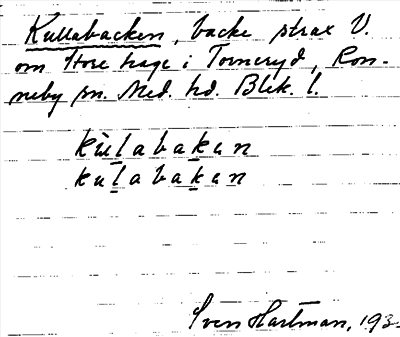 Kullabacken, backe strax V.
om Store hage i Torneryd, Ron-
neby sn. Med. hd. Blek. l.
kùlabakan
kulabakan
Sven Hartman, 193